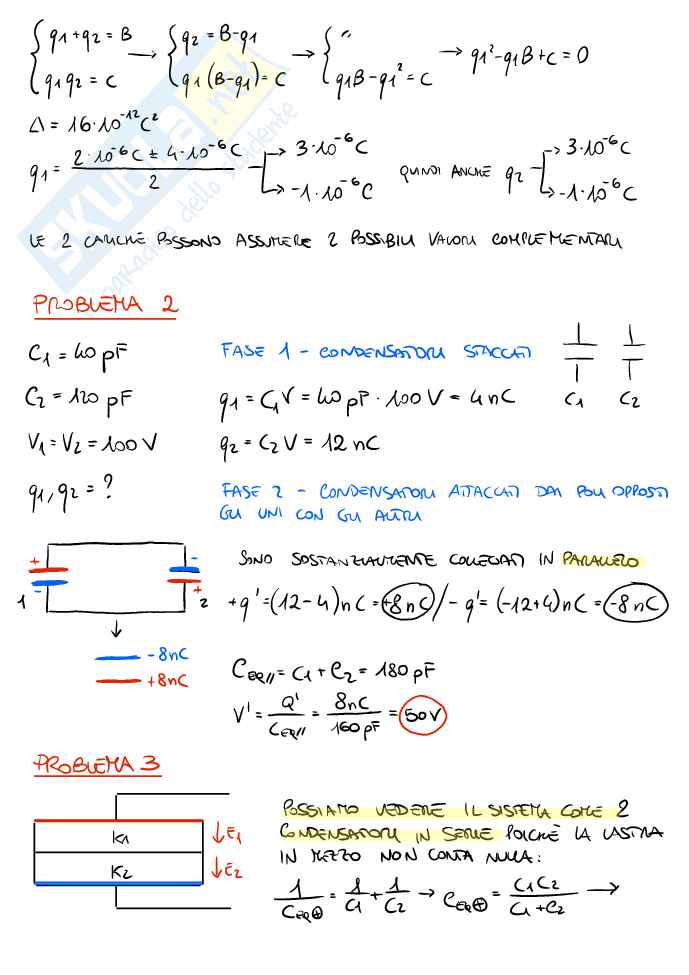 { q1 + q2 = B → { q2 = B - q1 → { " → q1² - q1B + C = 0
{ q1 q2 = C { q1 (B - q1) = C { q1B - q1² = C
Δ = 16·10⁻¹² C²
q1 = (2·10⁻⁶C ± 4·10⁻⁶C) / 2 → 3·10⁻⁶C → -1·10⁻⁶C QUINDI ANCHE q2 → 3·10⁻⁶C → -1·10⁻⁶C
LE 2 CARICHE POSSONO ASSUMERE 2 POSSIBILI VALORI COMPLEMENTARI
SKUOLA.net
paradiso dello studente
PROBLEMA 2
C1 = 40 pF FASE 1 - CONDENSATORI STACCATI
C2 = 120 pF q1 = C1V = 40 pF · 100 V = 4 nC C1 C2
V1 = V2 = 100 V q2 = C2 V = 12 nC
q1, q2 = ? FASE 2 - CONDENSATORI ATTACCATI DAI POLI OPPOSTI
GLI UNI CON GLI ALTRI
SONO SOSTANZIALMENTE COLLEGATI IN PARALLELO
+ - 1 - + 2
+q' = (12 - 4) nC = +8 nC / -q' = (-12 + 4) nC = -8 nC
- 8 nC
+ 8 nC
CEQ// = C1 + C2 = 180 pF
V' = Q' / CEQ// = 8nC / 160 pF = 50 V
PROBLEMA 3
K1 E1
K2 E2
POSSIAMO VEDERE IL SISTEMA COME 2
CONDENSATORI IN SERIE POICHÈ LA LASTRA
IN MEZZO NON CONTA NULLA:
1/CEQ⊕ = 1/C1 + 1/C2 → CEQ⊕ = C1C2 / C1 + C2 →